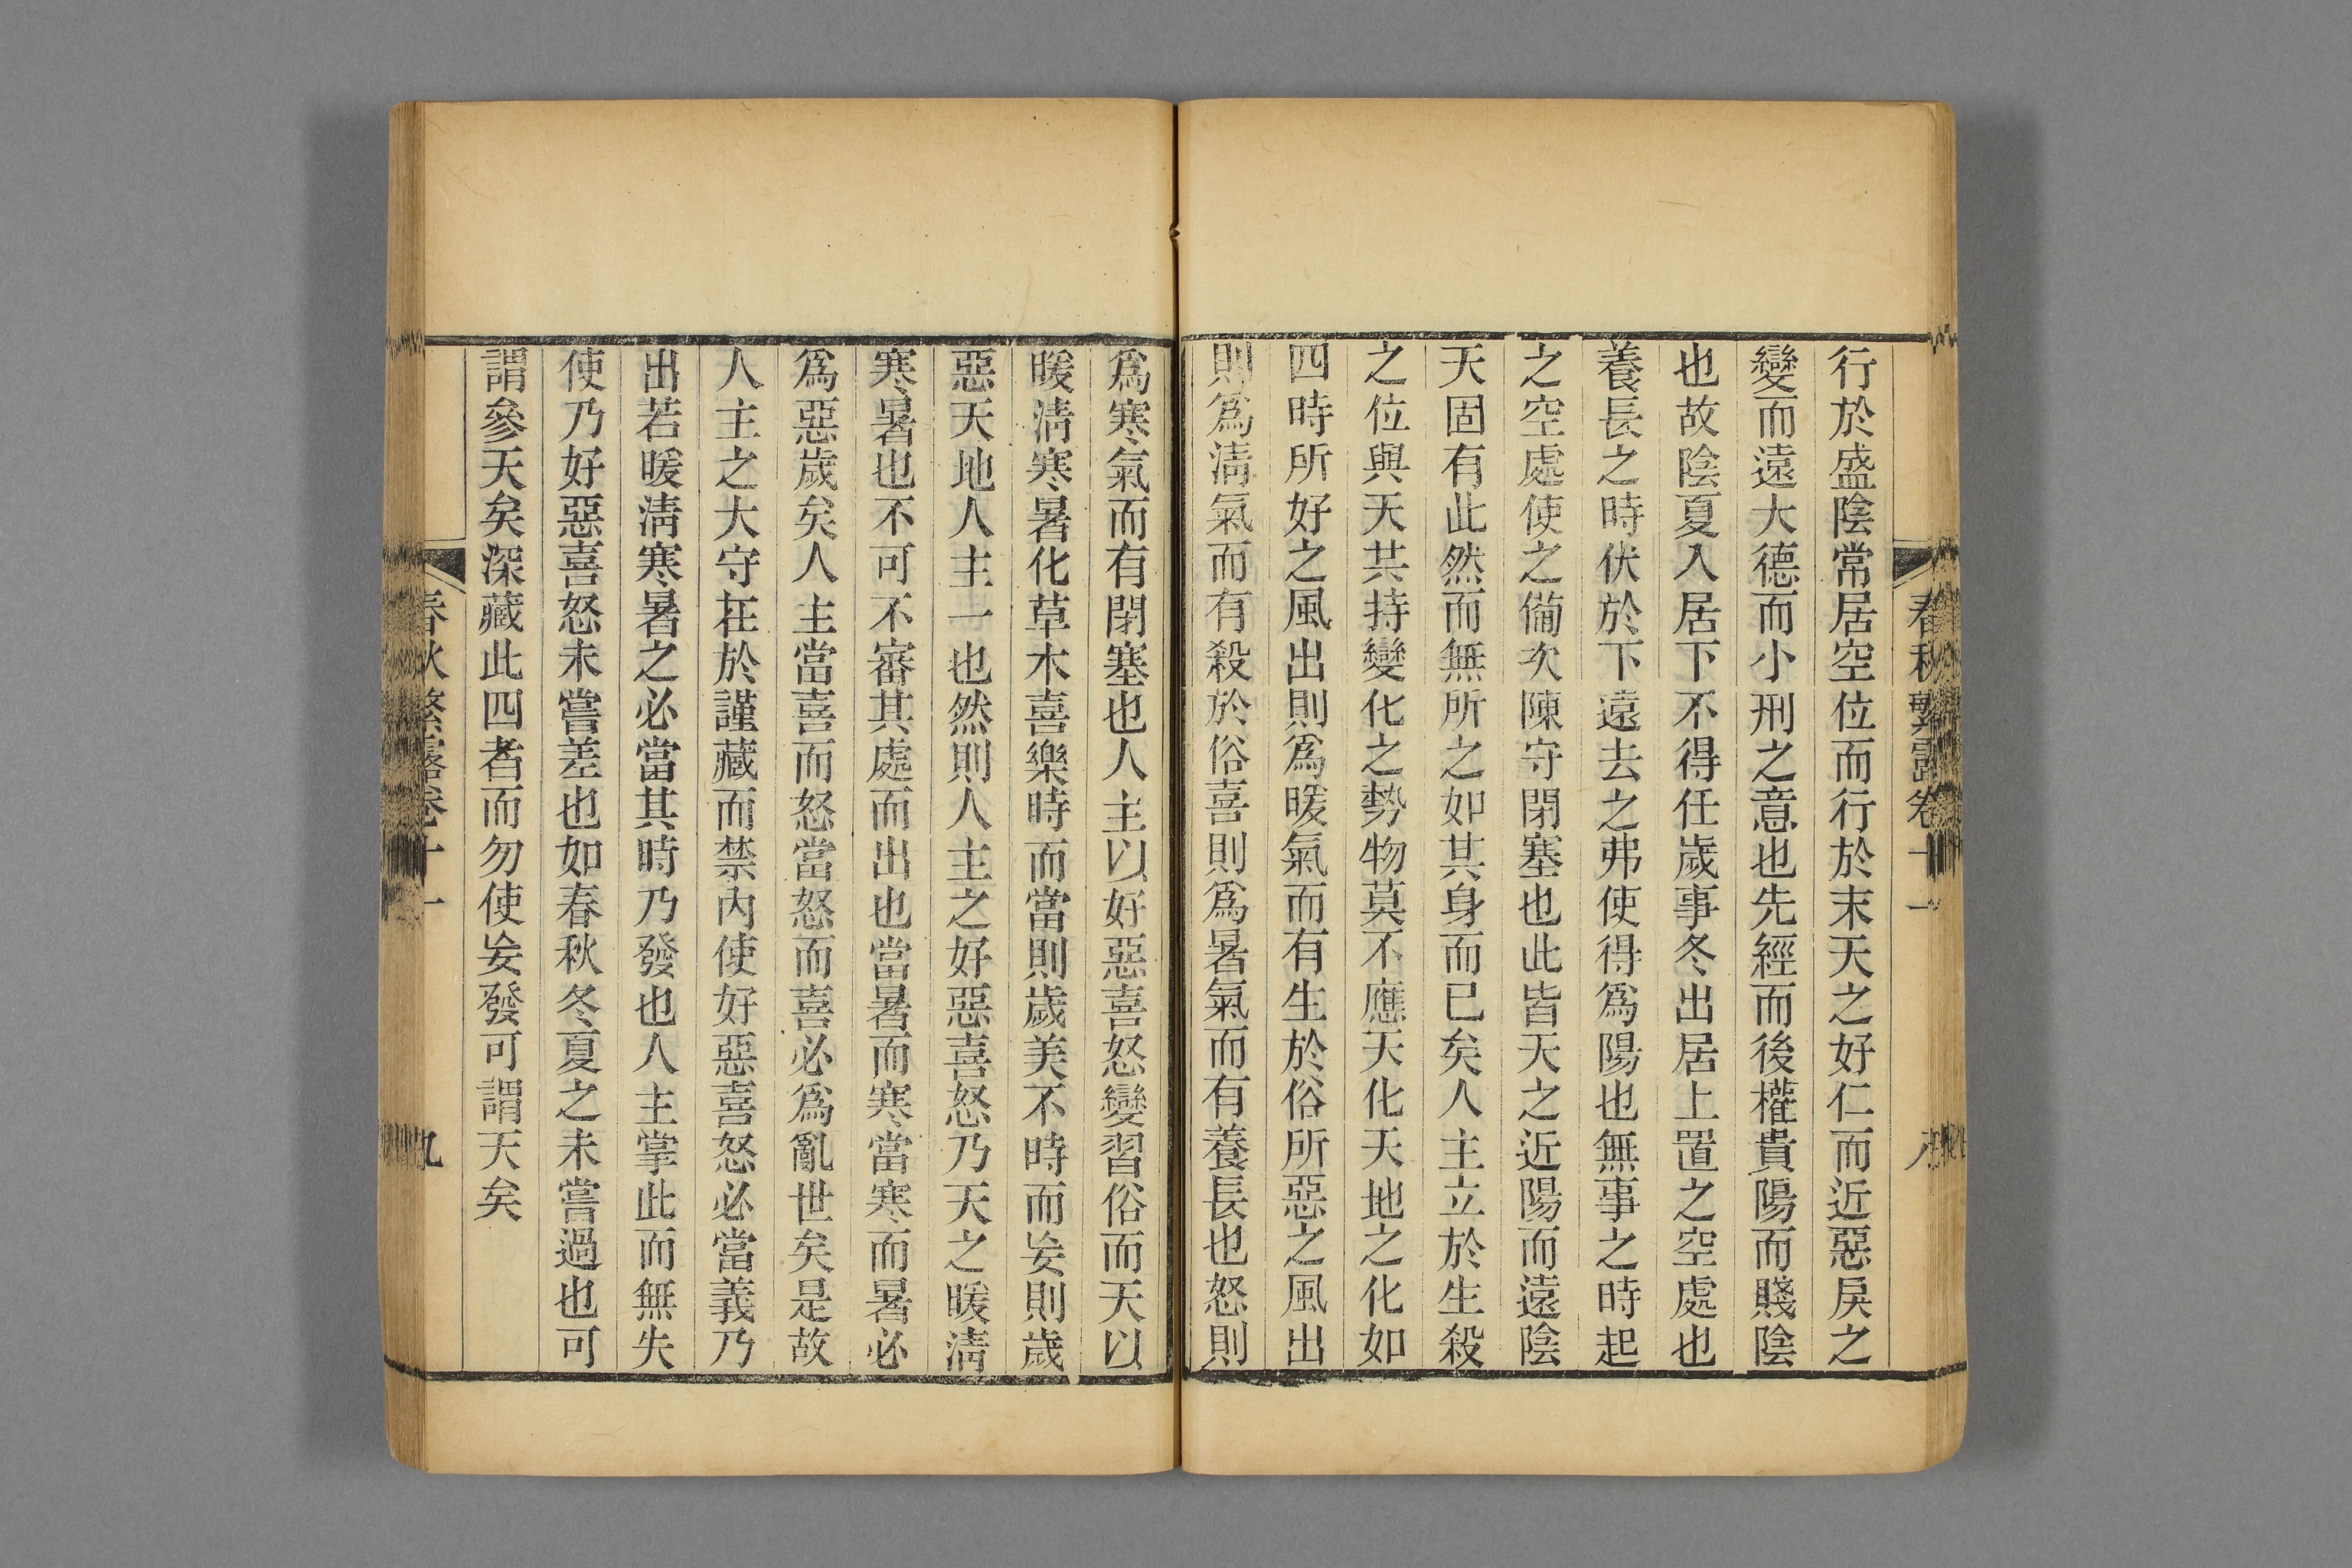 春秋繁露卷十一
行於盛陰常居空位而行於末天之好仁而近惡戾之
變而遠大德而小刑之意也先經而後權貴陽而賤陰
也故陰夏入居下不得任歲事冬出居上置之空處也
養長之時伏於下遠去之弗使得爲陽也無事之時起
之空處使之僃次陳守閉塞也此皆天之近陽而遠陰
天固有此然而無所之如其身而已矣人主立於生殺
之位與天共持變化之勢物莫不應天化天地之化如
四時所好之風出則爲暖氣而有生於俗所惡之風出
則爲淸氣而有殺於俗喜則爲暑氣而有養長也怒則
爲寒氣而有閉塞也人主以好惡喜怒變習俗而天以
暖淸寒暑化草木喜樂時而當則歲美不時而妄則歲
惡天地人主一也然則人主之好惡喜怒乃天之暖淸
寒暑也不可不審其處而出也當暑而寒當寒而暑必
爲惡歲矣人主當喜而怒當怒而喜必爲亂世矣是故
人主之大守在於謹藏而禁內使好惡喜怒必當義乃
出若暖淸寒暑之必當其時乃發也人主掌此而無失
使乃好惡喜怒未嘗差也如春秋冬夏之未嘗過也可
謂參天矣深藏此四者而勿使妄發可謂天矣
春秋繁露卷十一
九